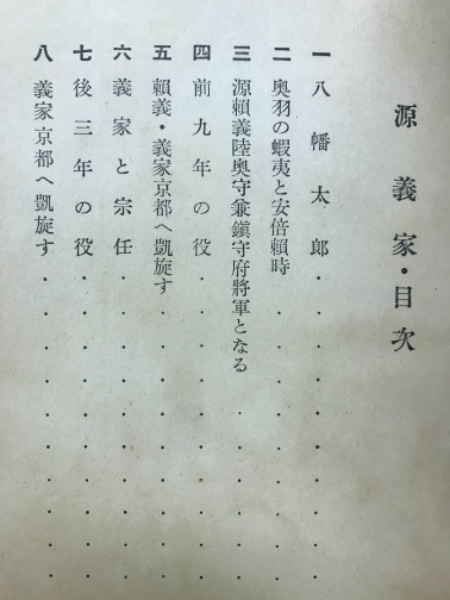 源義家・目次
一 八幡太郎・・・・・・・・・・・・
二 奥羽の蝦夷と安倍賴時・・・・・・・・
三 源賴義陸奥守兼鎭守府將軍となる・・・・・
四 前九年の役・・・・・・・・・・・・
五 賴義・義家京都へ凱旋す・・・・・・・・
六 義家と宗任・・・・・・・・・・・・
七 後三年の役・・・・・・・・・・・・
八 義家京都へ凱旋す・・・・・・・・・・